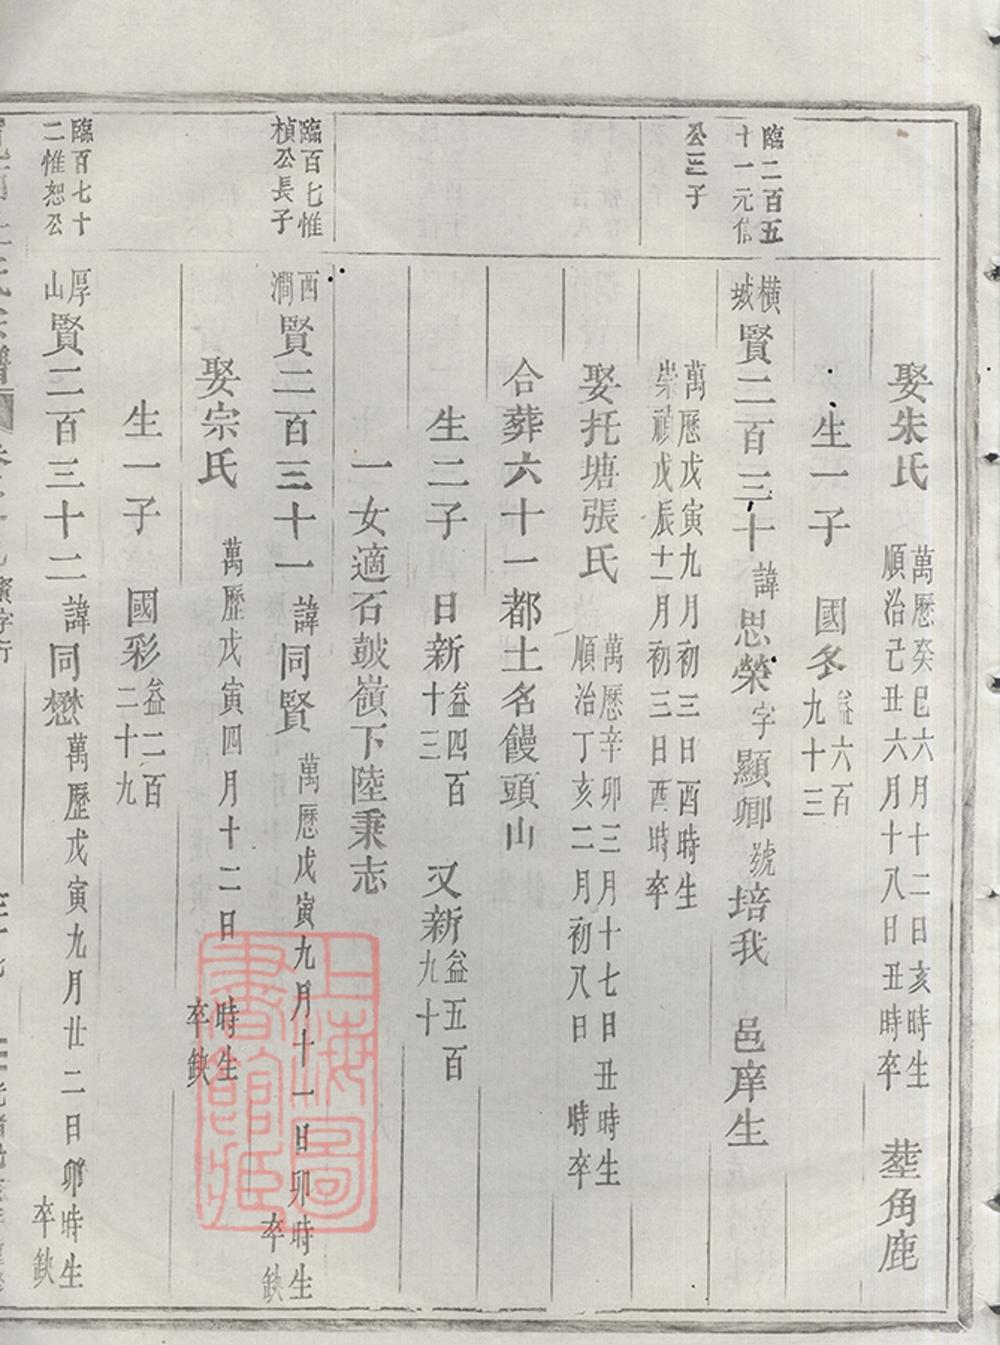 娶朱氏 萬曆癸巳六月十二日亥時生 順治己丑六月十八日丑時卒 塟角鹿
生一子 國冬 益六百九十三
臨二百五十一元信公三子
橫城 賢二百三十 諱思榮 字顯卿 號培我 邑庠生
萬曆戊寅九月初三日酉時生
崇禎戊辰十一月初三日酉時卒
娶托塘張氏 萬曆辛卯三月十七日丑時生 順治丁亥二月初八日 時卒
合葬六十一都土名饅頭山
生二子 日新 益四百十三 又新 益五百九十
一女適石鼓嶺下陸秉志
臨百七惟楨公長子
西澗 賢二百三十一 諱同賢 萬曆戊寅九月十一日卯時生 卒缺
娶宗氏 萬歷戊寅四月十二日 時生 卒缺
生一子 國彩 益二百二十九
臨百七十二惟恕公
厚山 賢二百三十二 諱同懋 萬歷戊寅九月廿二日卯時生 卒缺
上海圖書館藏